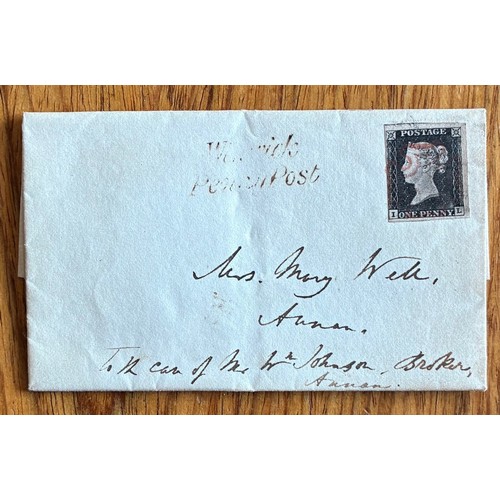 POSTAGE
I ONE PENNY L
Penny Post
Mrs. Mary Well.
Annan.
To the care of Mr Wm Johnson, Broker,
Annan.